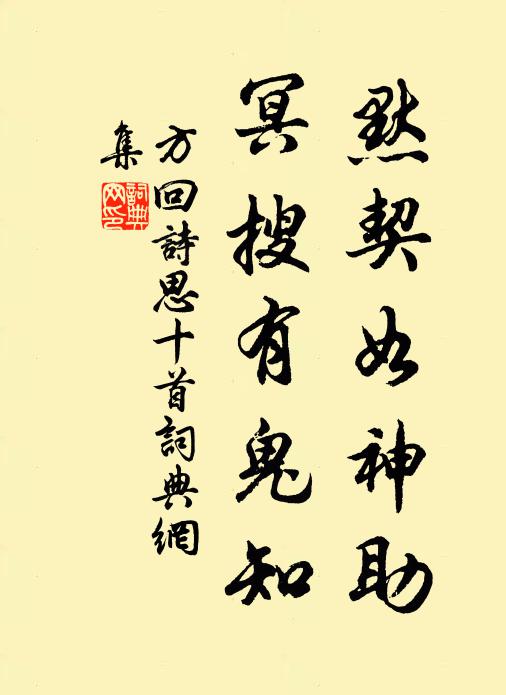 默契如神助
冥搜有鬼知
方回詩思十首詞典網
集
詞典
网印